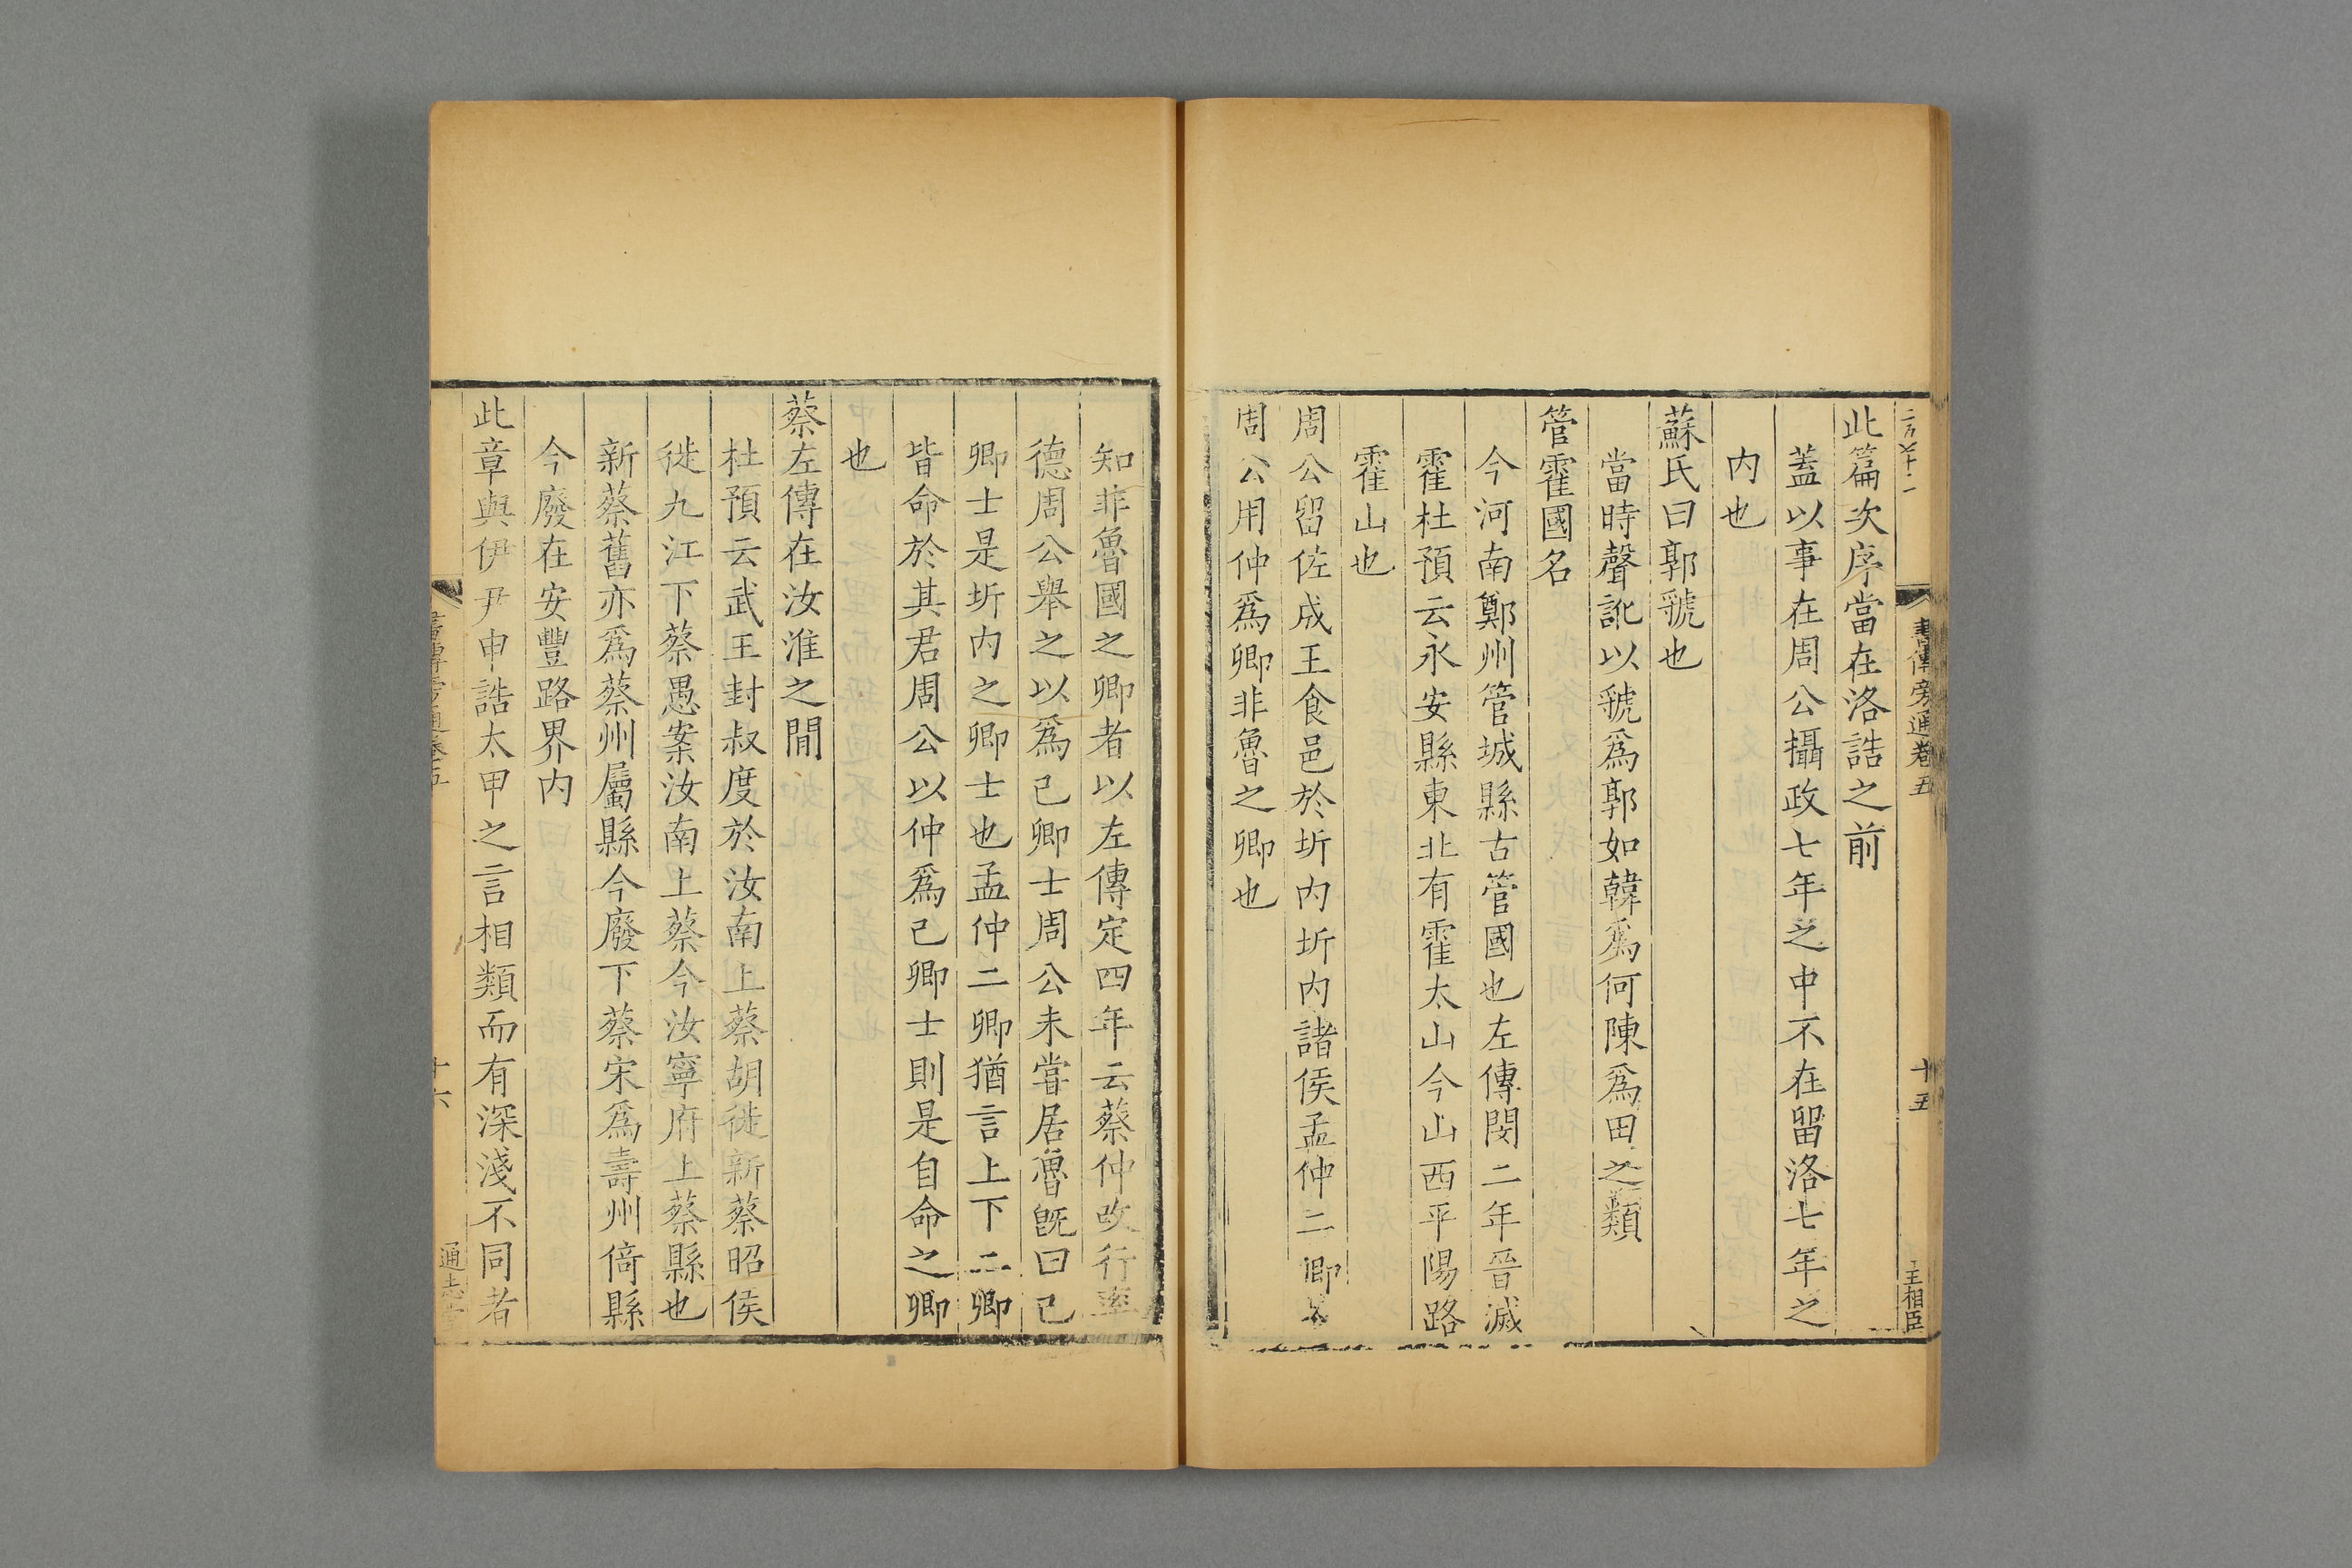 書傳旁通卷五
十五
王相臣
此篇次序當在洛誥之前
蓋以事在周公攝政七年之中不在留洛七年之
内也
蘇氏曰郭虢也
當時聲訛以虢爲郭如韓爲何陳爲田之類
管霍國名
今河南鄭州管城縣古管國也左傳閔二年晉滅
霍杜預云永安縣東北有霍太山今山西平陽路
霍山也
周公留佐成王食邑於圻内圻内諸侯孟仲二卿故
周公用仲爲卿非魯之卿也
知非魯國之卿者以左傳定四年云蔡仲改行率
德周公舉之以爲己卿士周公未嘗居魯旣曰己
卿士是圻内之卿士也孟仲二卿猶言上下二卿
皆命於其君周公以仲爲己卿士則是自命之卿
也
蔡左傳在汝淮之間
杜預云武王封叔度於汝南上蔡胡徙新蔡昭侯
徙九江下蔡愚案汝南上蔡今汝寧府上蔡縣也
新蔡舊亦爲蔡州屬縣今廢下蔡宋爲壽州倚縣
今廢在安豐路界内
此章與伊尹申誥太甲之言相類而有深淺不同者
書傳旁通卷五
十六
通志堂